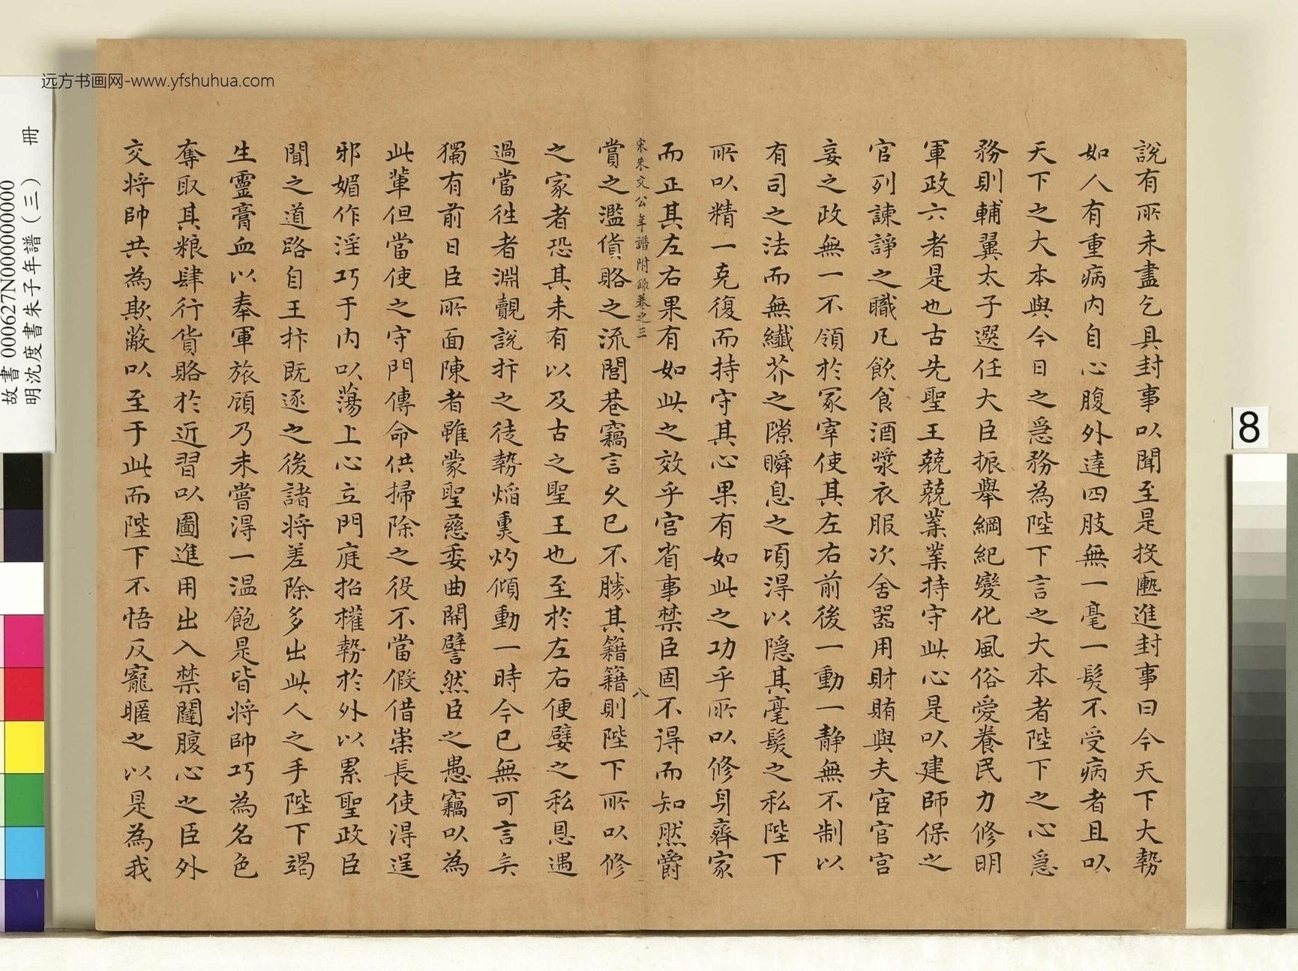 說有所未盡乞具封事以聞至是投匭進封事曰今天下大勢
如人有重病內自心腹外達四肢無一毫一髮不受病者且以
天下之大本與今日之急務為陛下言之大本者陛下之心急
務則輔翼太子選任大臣振舉綱紀變化風俗愛養民力修明
軍政六者是也古先聖王兢兢業業持守此心是以建師保之
官列諫諍之職凡飲食酒漿衣服次舍器用財賄與夫宦官宮
妾之政無一不領於冢宰使其左右前後一動一靜無不制以
有司之法而無纖芥之隙瞬息之頃得以隱其毫髮之私陛下
所以精一克復而持守其心果有如此之功乎所以修身齊家
而正其左右果有如此之效乎宮省事禁臣固不得而知然爵
宋朱文公年譜附錄卷之三 八
賞之濫貨賂之流閭巷竊言久已不勝其籍籍則陛下所以修
之家者恐其未有以及古之聖王也至於左右便嬖之私恩遇
過當往者淵覿說抃之徒勢焰熏灼傾動一時今已無可言矣
獨有前日臣所面陳者雖蒙聖慈委曲開譬然臣之愚竊以為
此輩但當使之守門傳命供掃除之役不當假借崇長使得逞
邪媚作淫巧于內以蕩上心立門庭招權勢於外以累聖政臣
聞之道路自王抃既逐之後諸將差除多出此人之手陛下竭
生靈膏血以奉軍旅顧乃未嘗得一溫飽是皆將帥巧為名色
奪取其粮肆行貨賂於近習以圖進用出入禁闥腹心之臣外
交將帥共為欺蔽以至于此而陛下不悟反寵暱之以是為我
远方书画网-www.yfshuhua.com
冊
故書000627N000000000
明沈度書朱子年譜(三)
8